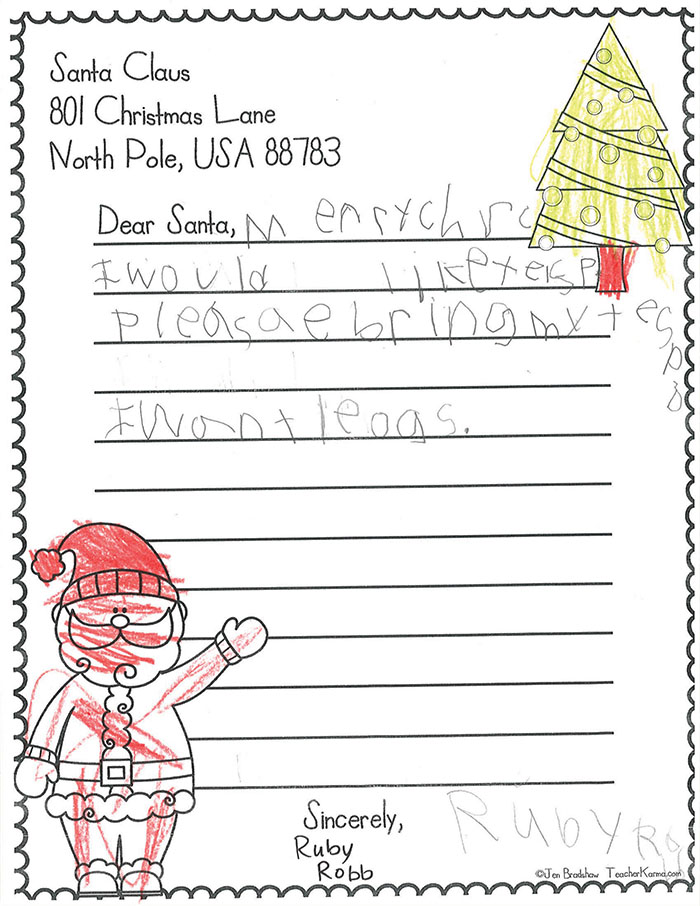 Santa Claus
801 Christmas Lane
North Pole, USA 88783
Dear Santa, Merrychrc
I would like tesp
pleasae bring my tespo
I want leogs.
Sincerely,
Ruby
Robb
Ruby Ro
©Jen Bradshaw TeacherKarma.com